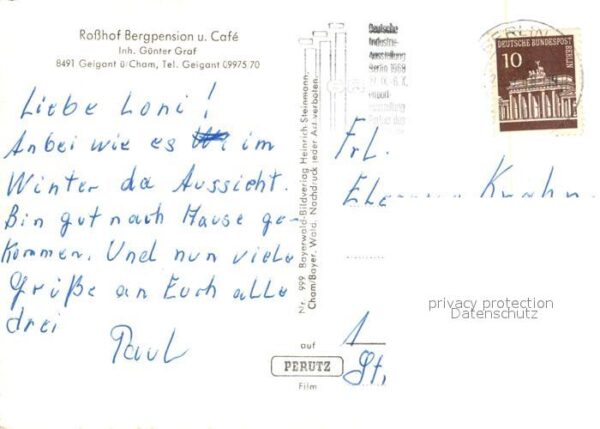 Roßhof Bergpension u. Café
Inh. Günter Graf
8491 Geigant ü/Cham, Tel. Geigant 09975 70
Liebe Loni!
Anbei wie es im
Winter da Aussieht.
Bin gut nach Hause ge-
kommen. Und nun viele
Grüße an Euch alle
drei
Paul
Nr. 999 Bayerwald-Bildverlag Heinrich Steinmann,
Cham/Bayer. Wald. Nachdruck jeder Art verboten.
auf
PERUTZ
Film
Deutsche
Industrie-
Ausstellung
Berlin 1968
BERLIN
DEUTSCHE BUNDESPOST
BERLIN
10
Frl.
1
St.
privacy protection
Datenschutz